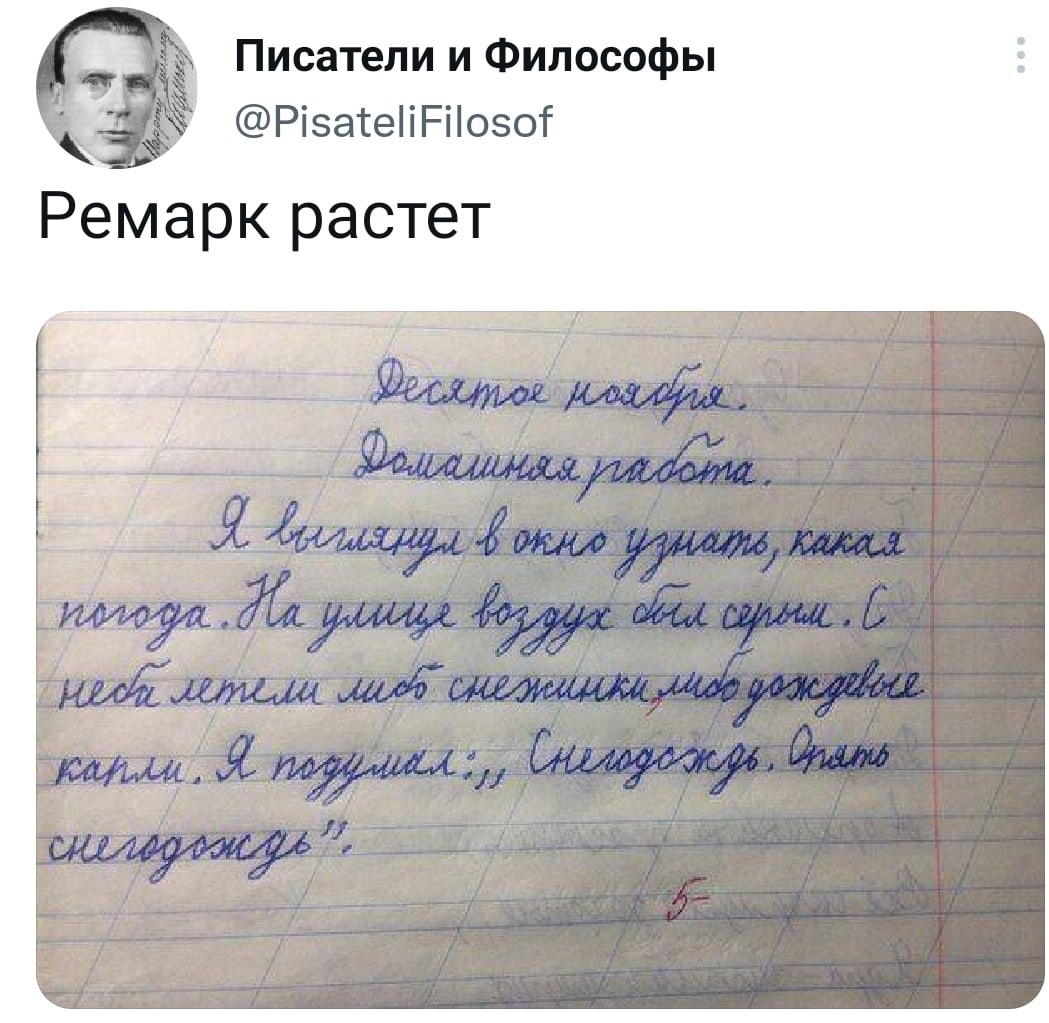 Писатели и Философы
@PisateliFilosof
Ремарк растет
Десятое ноября.
Домашняя работа.
Я выглянул в окно узнать, какая
погода. На улице воздух был серым. С
неба летели либо снежинки, либо дождевые
капли. Я подумал: „ Снегодождь. Опять
снегодождь”.
5-